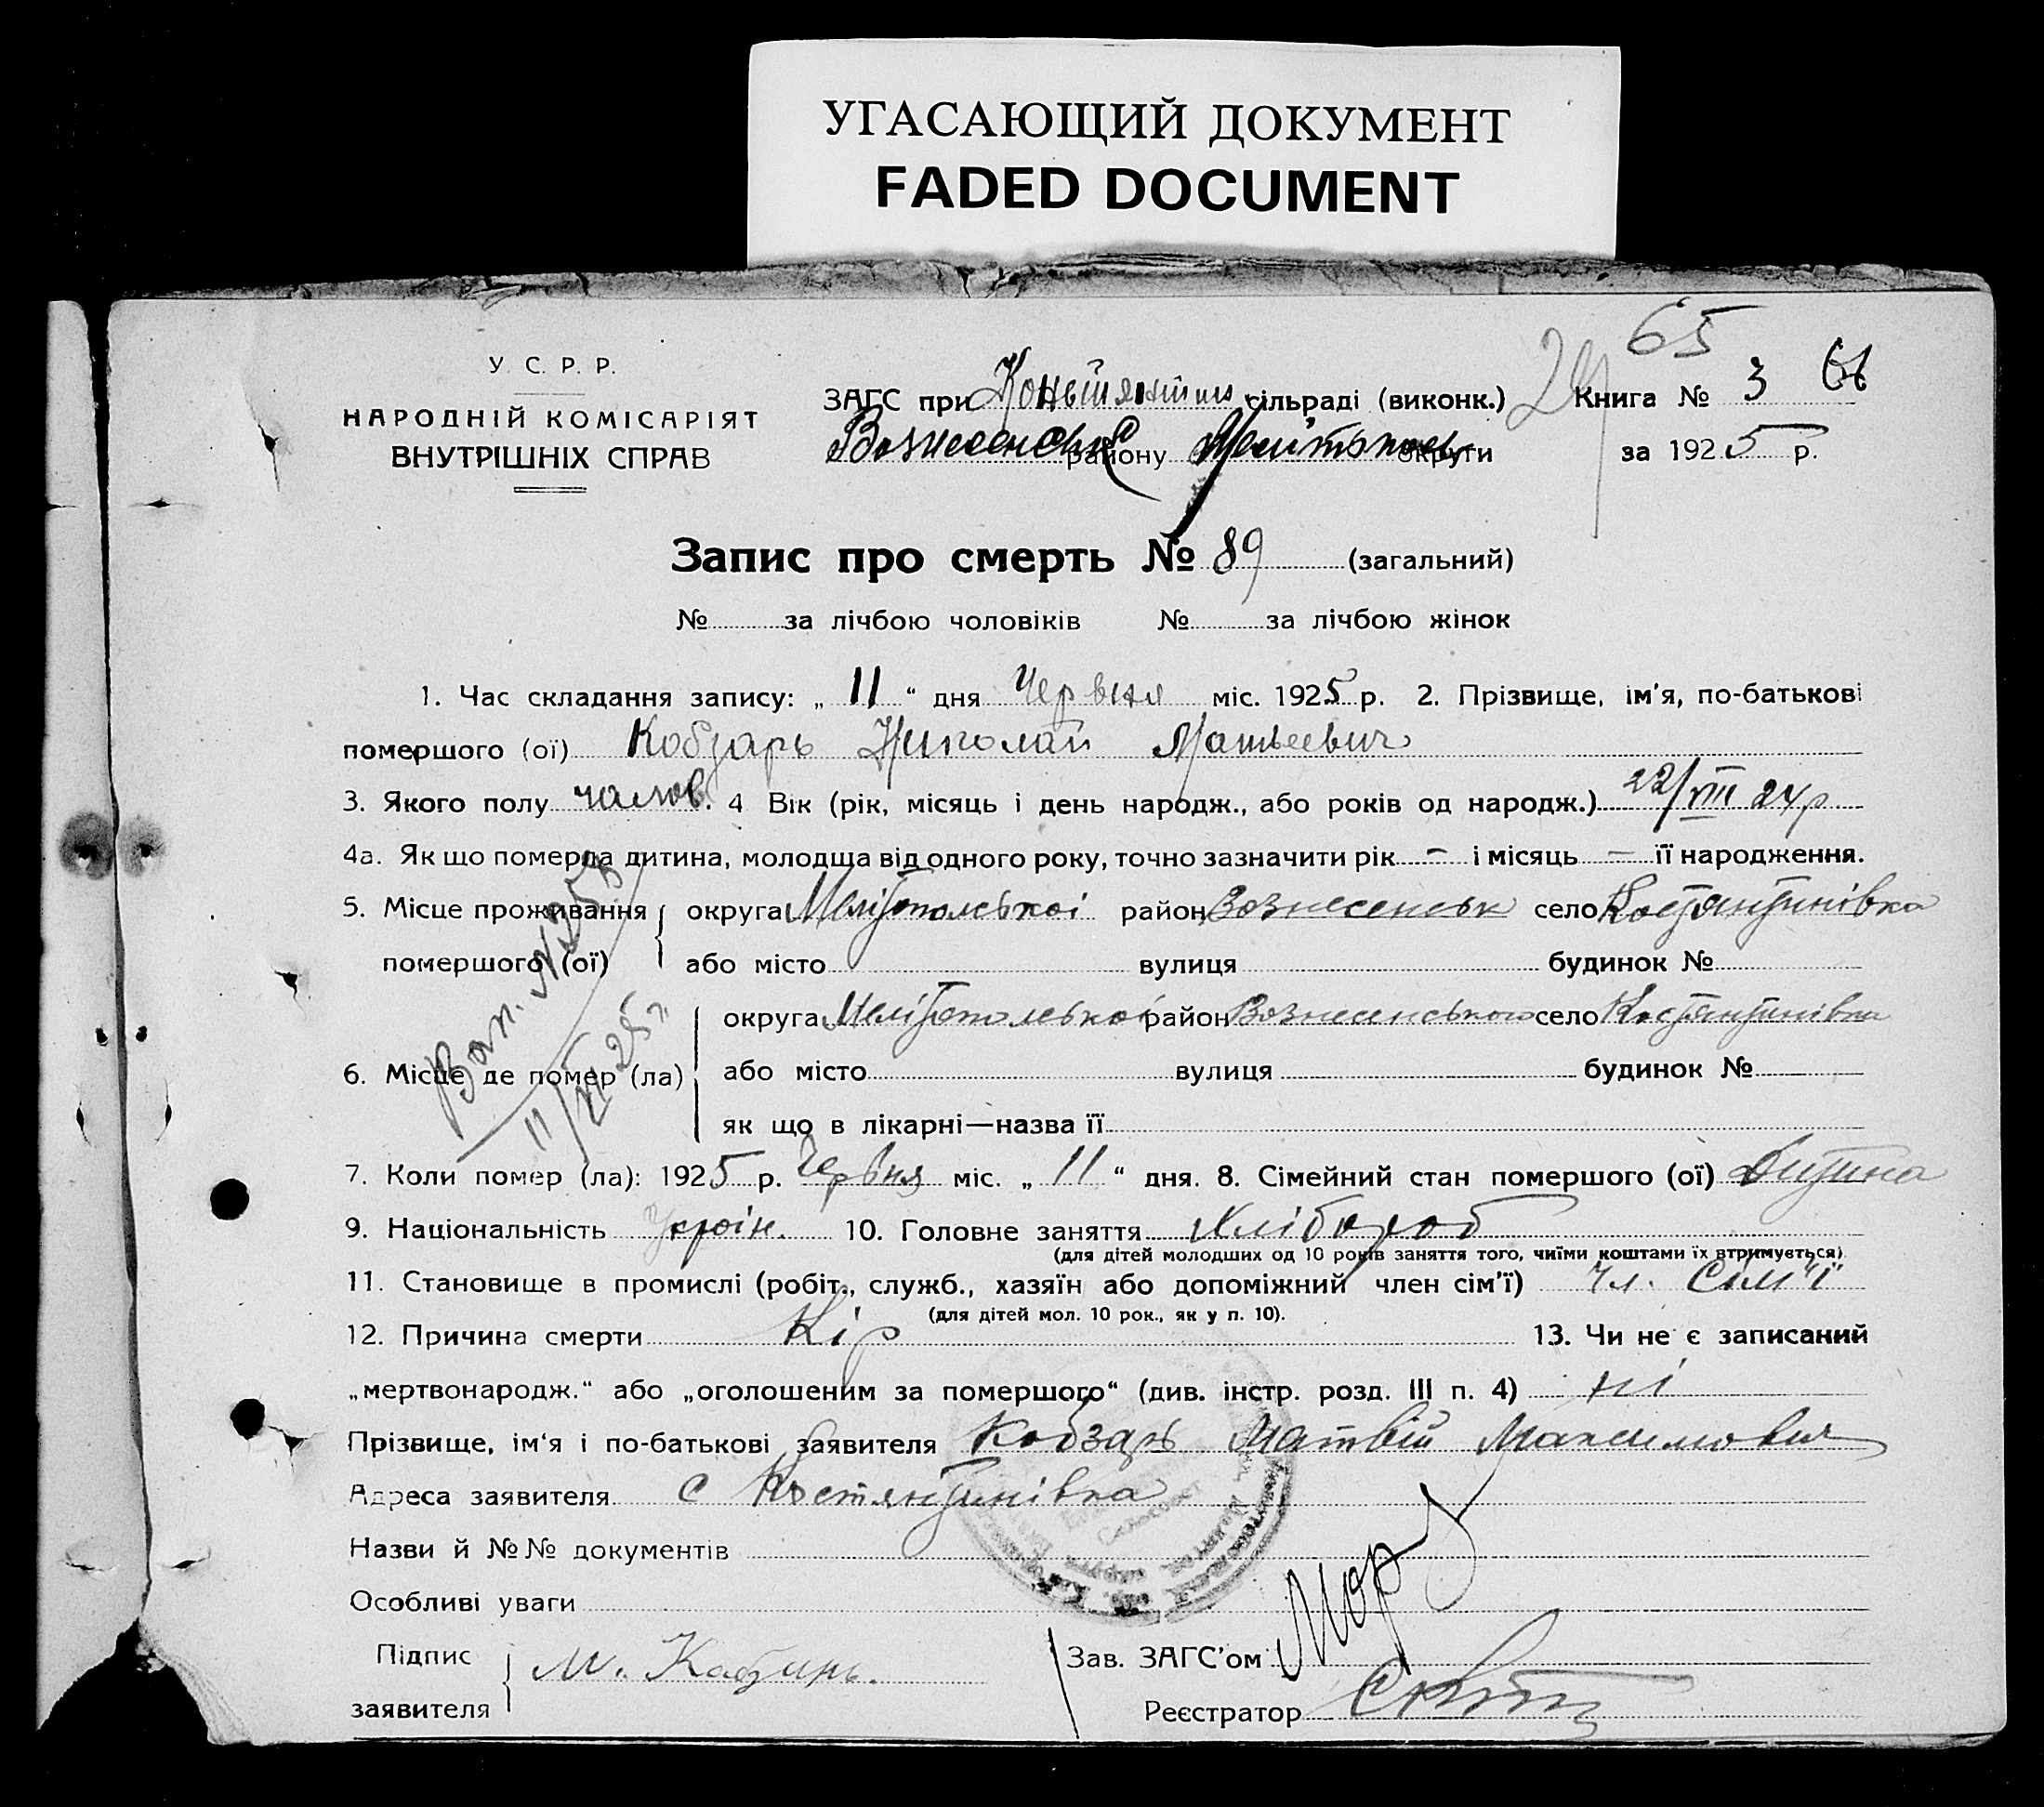 УГАСАЮЩИЙ ДОКУМЕНТ
FADED DOCUMENT
65
У. С. Р. Р.
НАРОДНІЙ КОМІСАРІЯТ
ВНУТРІШНІХ СПРАВ
ЗАГС при сільраді (виконк.) Книга № 3 66
Вознесенськ району округи за 1925 р.
Запис про смерть № 89 (загальний)
№ за лічбою чоловіків № за лічбою жінок
1. Час складання запису: „ 11 “ дня Червня міс. 1925 р. 2. Прізвище, ім'я, по-батькові
помершого (ої) Кобзарь Николай Матвеевич
3. Якого полу чолов. 4 Вік (рік, місяць і день народж., або років од народж.) 22/VIII 24р
4а. Як що померла дитина, молодща від одного року, точно зазначити рік - і місяць — її народження.
5. Місце проживання округа Мелітопольської район Вознесенськ село Костянтинівка
помершого (ої) або місто вулиця будинок №
округа Мелітопольської район Вознесенського село Костянтинівка
6. Місце де помер (ла) або місто вулиця будинок №
як що в лікарні—назва її
11/VI 25 г.
7. Коли помер (ла): 1925 р. Червня міс. „ 11 “ дня. 8. Сімейний стан помершого (ої) Дитина
9. Національність Украін. 10. Головне заняття Хлібороб
(для дітей молодших од 10 років заняття того, чиїми коштами їх втримується)
11. Становище в промислі (робіт., служб., хазяїн або допоміжний член сім'ї) Чл. Сім"ї
(для дітей мол. 10 рок., як у п. 10).
12. Причина смерти Кір 13. Чи не є записаний
„мертвонародж.“ або „оголошеним за помершого“ (див. інстр. розд. III п. 4) ні
Прізвище, ім'я і по-батькові заявителя Кобзарь Матвій Максимович
Адреса заявителя с Костянтинівка
Назви й №№ документів
Особливі уваги
Підпис
заявителя М. Кобзарь.
Зав. ЗАГС'ом
Реєстратор